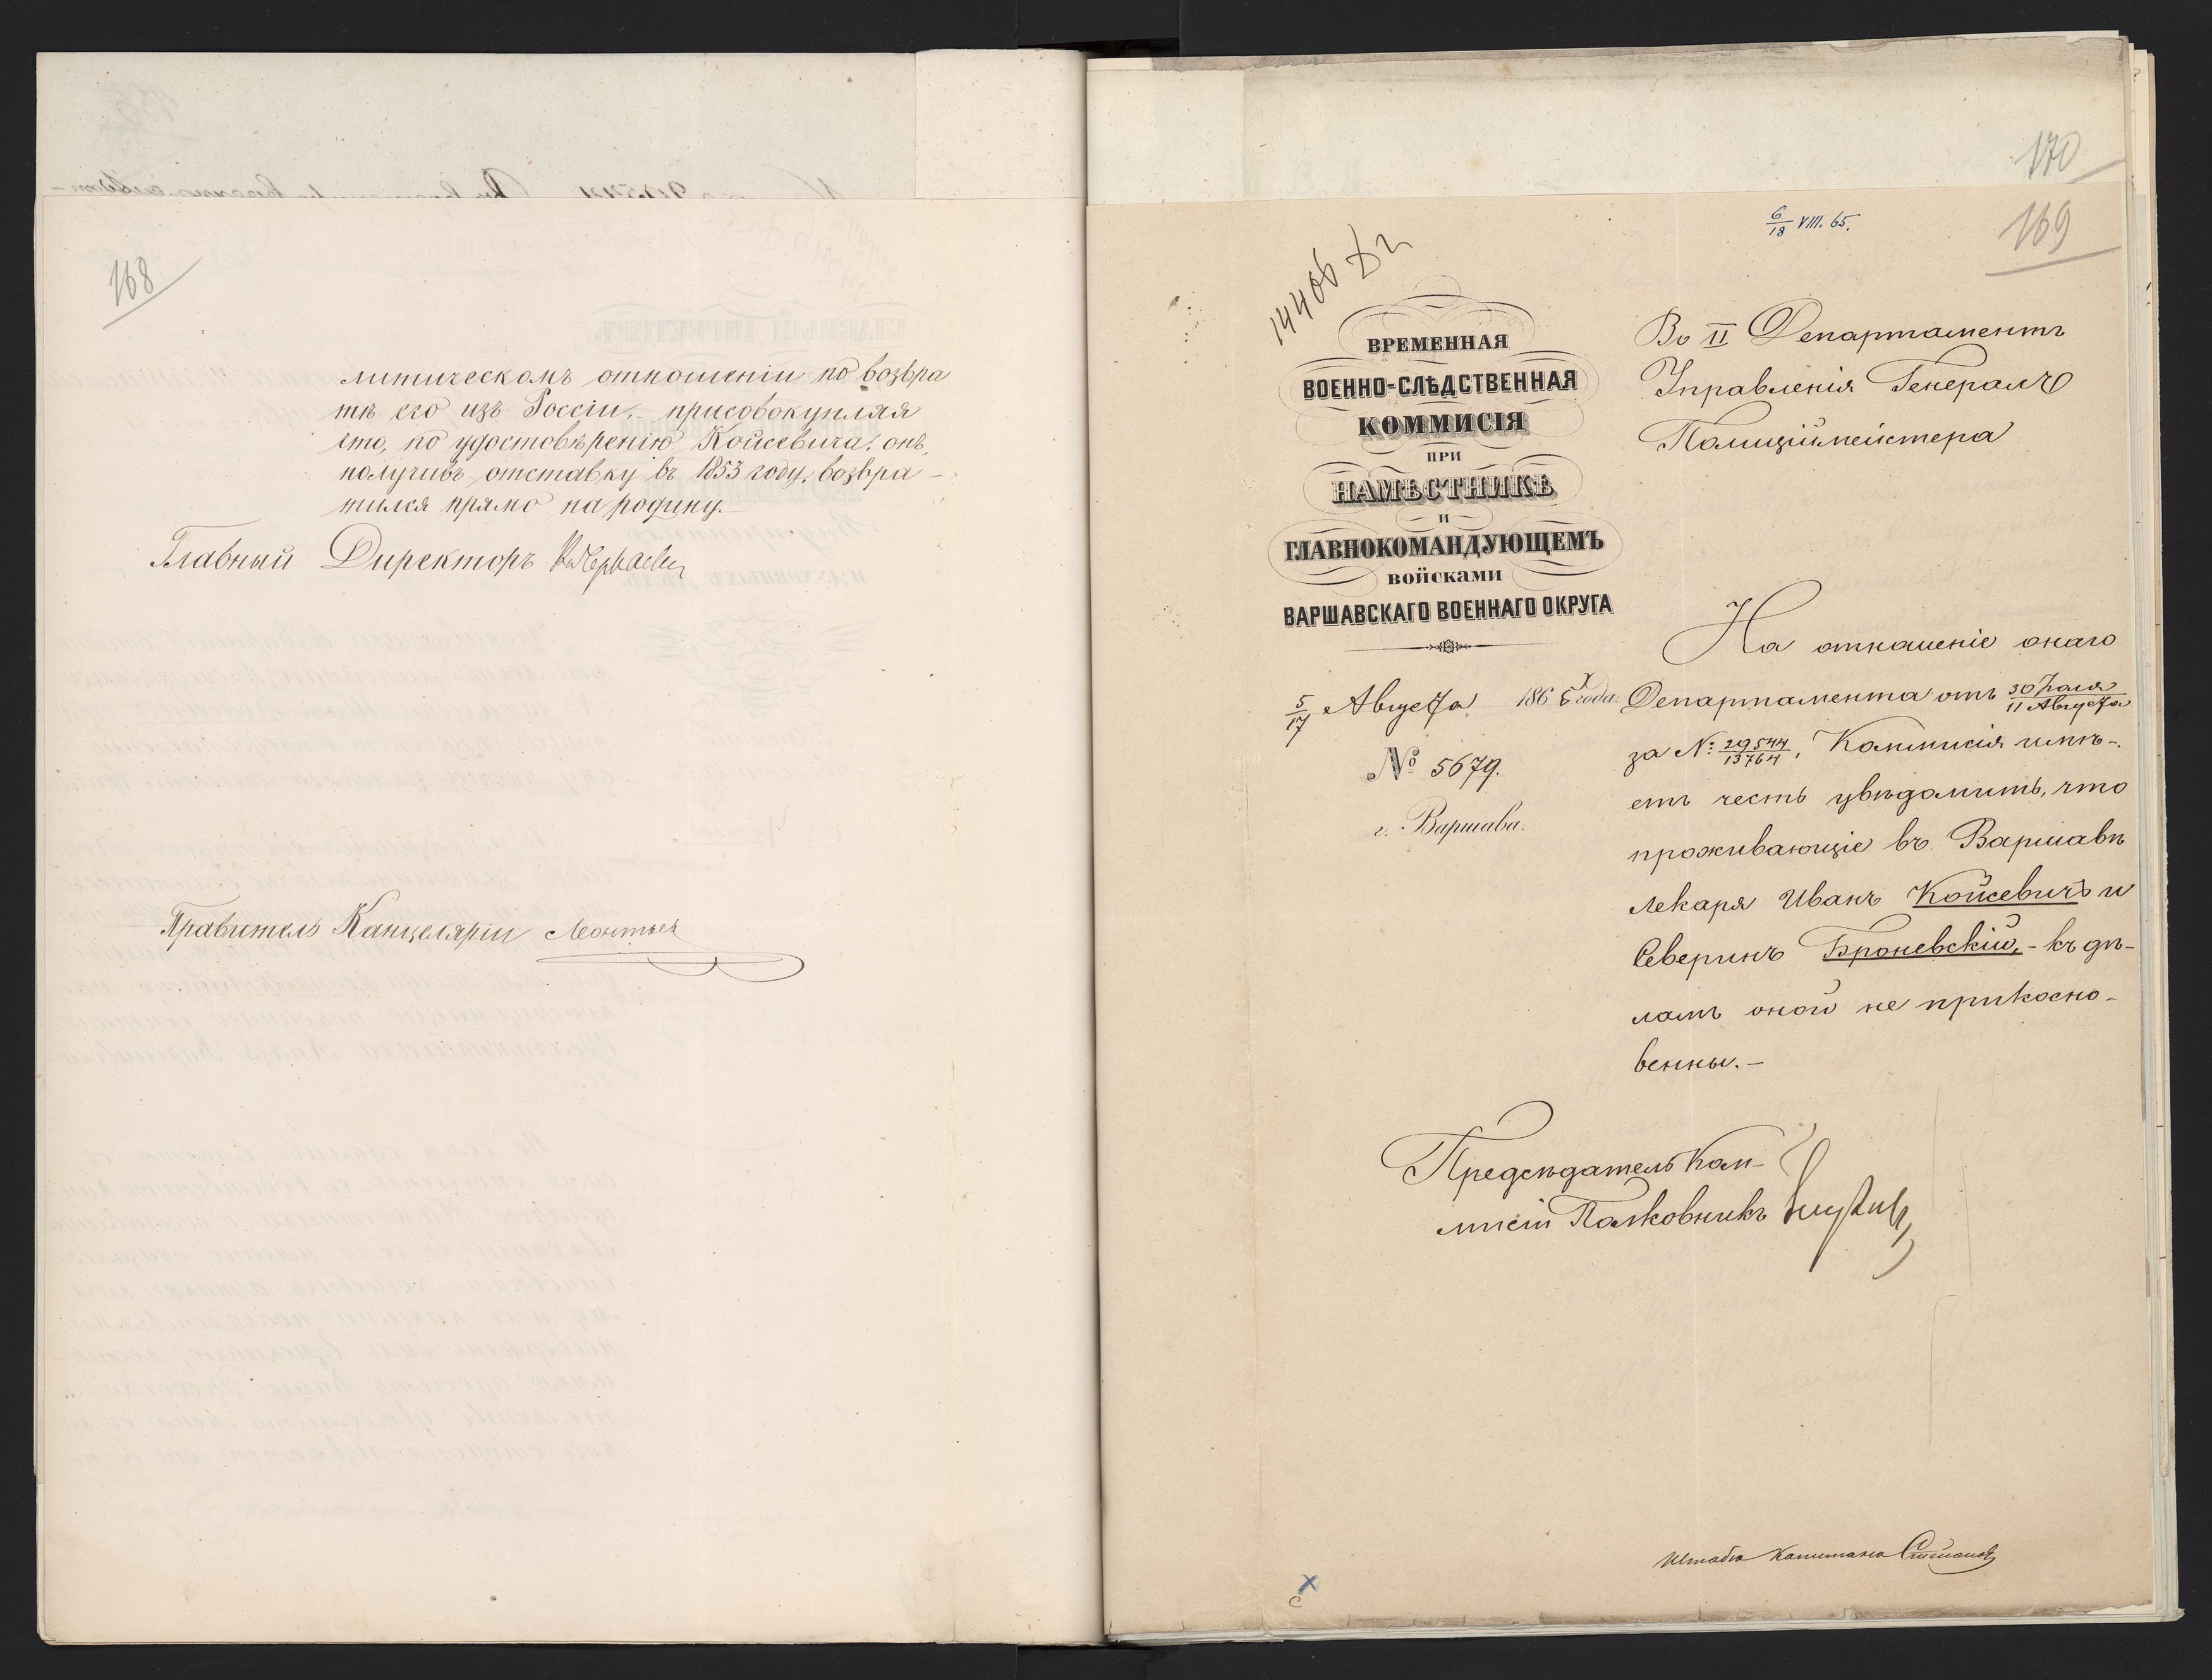 168
литическомъ отношеніи по возвра
тѣ его изъ Россіи, присовокупляя
что, по удостовѣренію Койсевича, онъ,
получивъ отставку въ 1853 году, возвра-
тился прямо на родину.
Главный Директоръ
Правитель Канцеляріи Леонтьев
170
169
6/18 VIII. 65.
14406
ВРЕМЕННАЯ
ВОЕННО-СЛѢДСТВЕННАЯ
КОММИСІЯ
ПРИ
НАМѢСТНИКѢ
И
ГЛАВНОКОМАНДУЮЩЕМЪ
ВОЙСКАМИ
ВАРШАВСКАГО ВОЕННАГО ОКРУГА
5/17 Августа 1865 года
№ 5679.
г. Варшава.
Во II Департаментъ
Управленія Генералъ
Полиціймейстера
На отношеніе онаго
Департамента отъ 30 Іюля/11 Августа
за №: 29544/13764, Коммисія имѣ-
етъ честь увѣдомить, что
проживающіе въ Варшавѣ
лекаря Иванъ Койсевичъ и
Северинъ Броневскій, - къ дѣ-
ламъ оной не прикосно-
венны. -
Предсѣдатель Ком-
мисіи Полковникъ
Штабсъ Капитанъ Степановъ